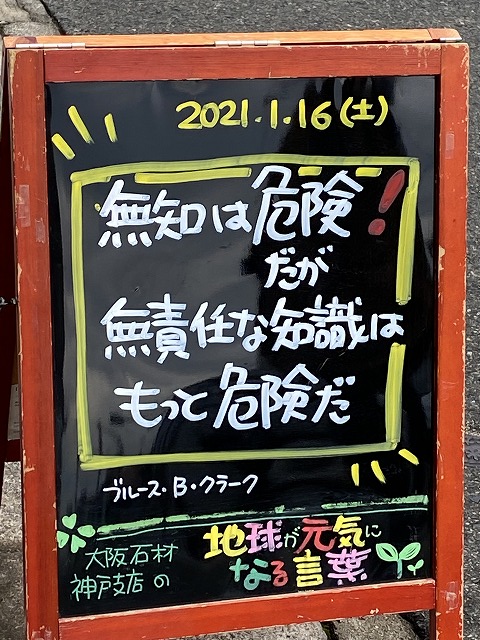 2021.1.16(土)
無知は危険!
だが
無責任な知識は
もっと危険だ
ブルース・B・クラーク
大阪石材
神戸支店の
地球が元気に
なる言葉